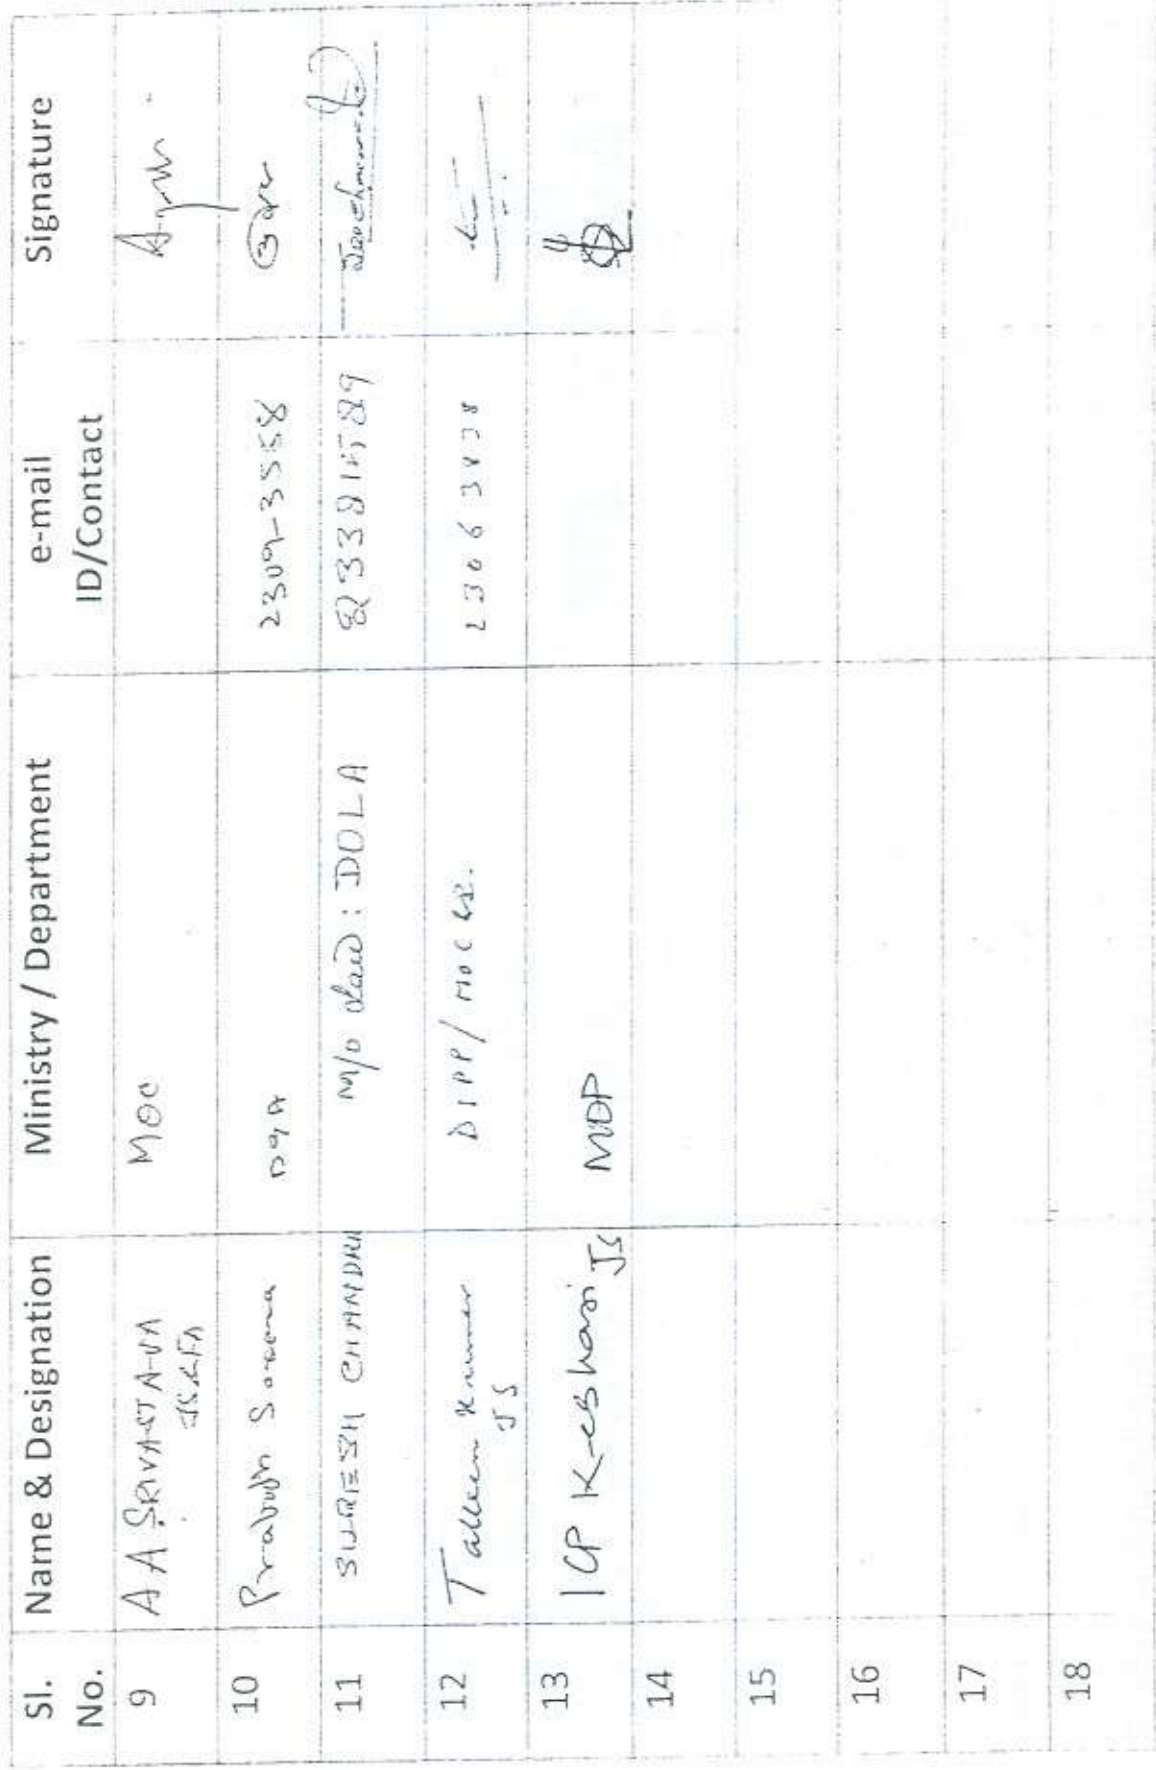 Sl. No. Name & Designation Ministry / Department e-mail ID/Contact Signature
9 A A SRIVASTAVA MOC
JS&FA
10 Prabodh Saxena 2309-3558
11 SURESH CHANDRA M/o Law : DOLA
12 Talleen Kumar DIPP / MOC &I. 23063038
JS
13 ICP Keshari JS MOP
14
15
16
17
18